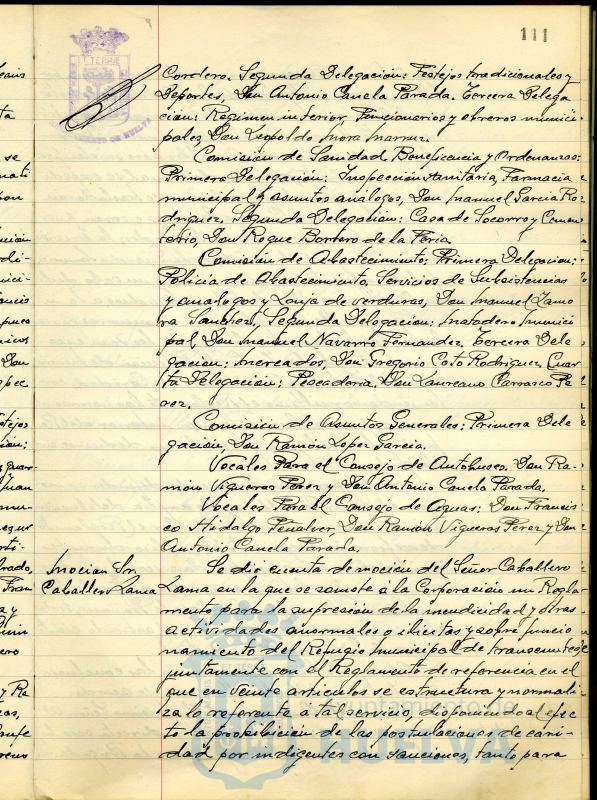 111
Cordero. Segunda Delegación: Festejos tradicionales y
Deportes, Don Antonio Canela Parada. Tercera Delega
ción: Regimen interior, Funcionarios y obreros munici-
pales, Don Leopoldo Mora
Comisión de Sanidad, Beneficencia y Ordenanzas:
Primera Delegación: Inspección sanitaria, Farmacia
municipal y asuntos análogos, Don Manuel Garcia Ro-
driguez, Segunda Delegación: Casa de Socorro y Cemen
terio, Don Roque Bontero de la Feria.
Comisión de Abastecimiento: Primera Delegación:
Policia de Abastecimiento, Servicios de Subsistencias
y analogos y Lonja de verduras, Don Manuel Zamo
ra Sanchez, Segunda Delegación: Matadero munici
pal, Don Manuel Navarro Fernandez, Tercera Dele
gación: Mercados, Don Gregorio Coto Rodriguez. Cuar
ta Delegación: Pescaderia. Don Laureano Carrasco Pe
rez.
Comisión de Asuntos Generales: Primera Dele
gación, Don Ramón Lopez Garcia.
Vocales Para el Consejo de Autobuses. Don Ra-
món Vigueras Perez y Don Antonio Canela Parada.
Vocales Para el Consejo de Aguas: Don Francis
co Hidalgo Peñalver, Don Ramón Vigueras Perez y Don
Antonio Canela Parada.
Moción Sr.
Caballero Lama
Se dio cuenta de moción del Señor Caballero
Lama en la que se somete á la Corporación un Regla-
mento para la supresión de la mendicidad y otras
actividades anormales o ilicitas y sobre funcio
namiento del Refugio Municipal de transeuntes
juntamente con el Reglamento de referencia en el
que en veinte articulos se estructura y normali-
za lo referente á tal servicio, disponiendo al efec
to la prohibición de las postulaciones de cari-
dad por indigentes con sanciones, tanto para
Ayuntamiento de
HUELVA